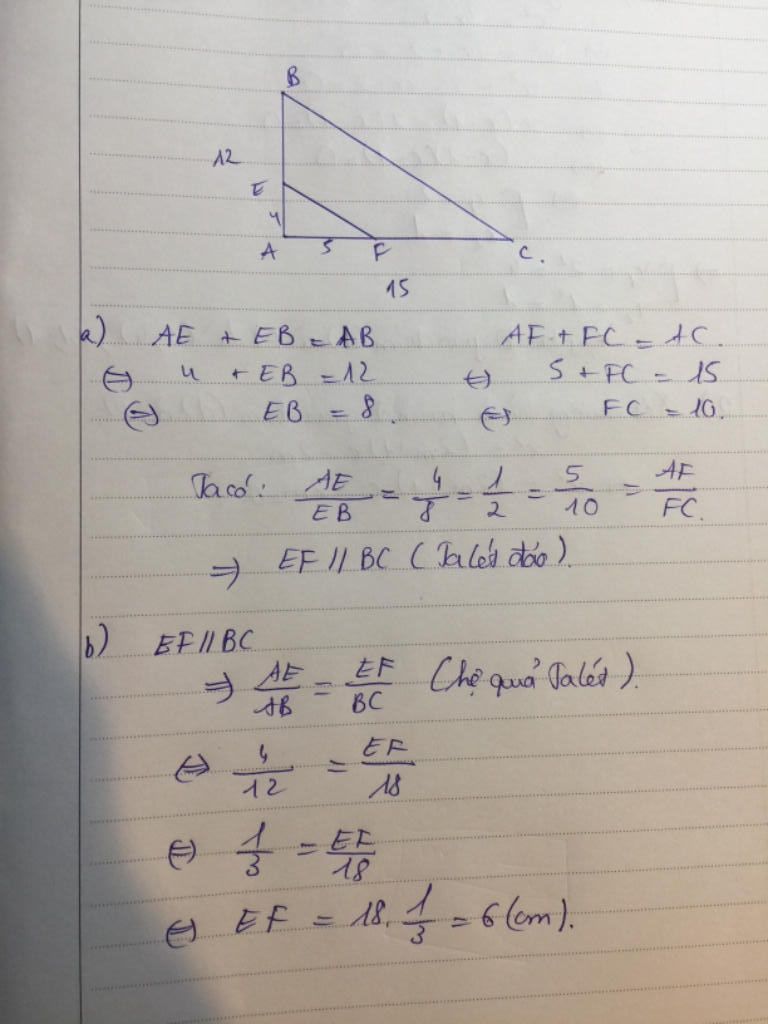 B
12
E
4
A 5 F C.
15
a) AE + EB = AB AF + FC = AC.
⇔ 4 + EB = 12 ⇔ 5 + FC = 15
⇔ EB = 8. ⇔ FC = 10.
Ta có: AE/EB = 4/8 = 1/2 = 5/10 = AF/FC.
⇒ EF // BC (Talét đảo).
b) EF // BC
⇒ AE/AB = EF/BC (hệ quả Talét).
⇔ 4/12 = EF/18
⇔ 1/3 = EF/18
⇔ EF = 18. 1/3 = 6 (cm).